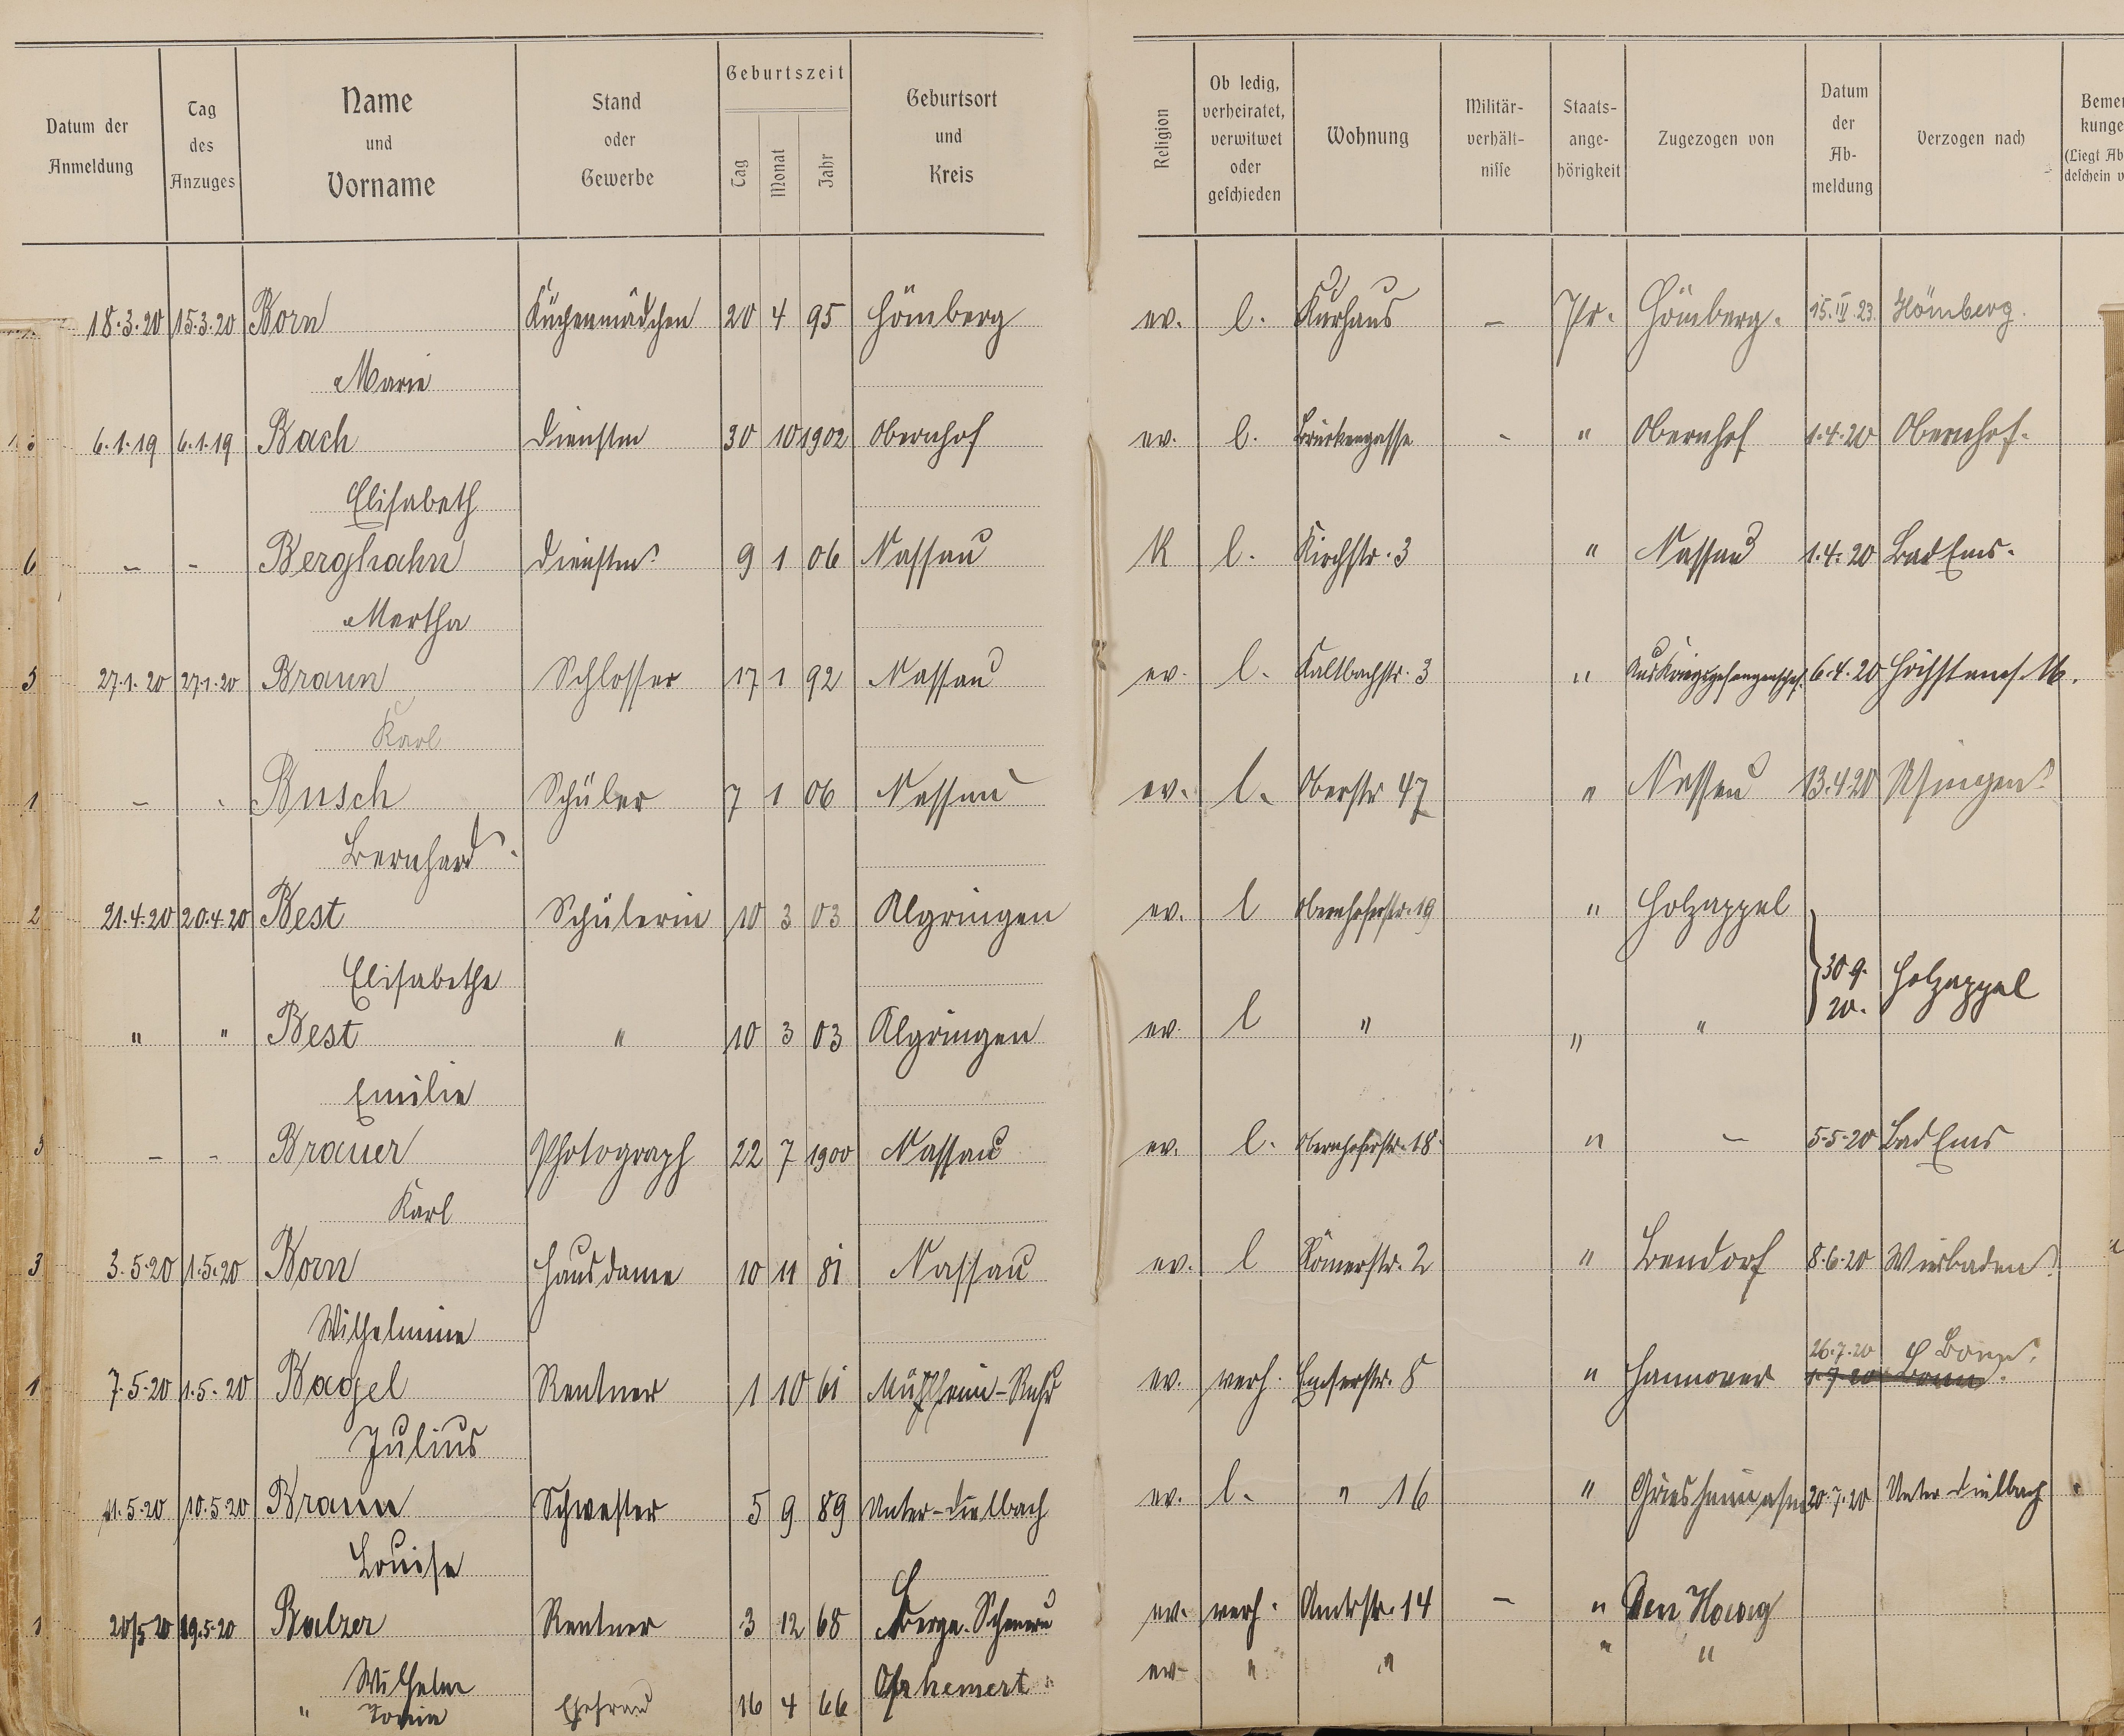 Datum der Anmeldung | Tag des Anzuges | Name und Vorname | Stand oder Gewerbe | Geburtszeit Tag Monat Jahr | Geburtsort und Kreis | Religion | Ob ledig, verheiratet, verwitwet oder geschieden | Wohnung | Militär-verhält-nisse | Staats-ange-hörigkeit | Zugezogen von | Datum der Ab-meldung | Verzogen nach | Bemer kunge (Liegt Ab deschein v
18.3.20 15.3.20 Born Küchenmädchen 20 4 95 Hömberg ev. l. Kurhaus – Pr. Hömberg. 15.IV.23. Hömberg.
Marie
6.1.19 6.1.19 Bach Dienstm 30 10 1902 Obernhof ev. l. Brückengasse - " Obernhof 1.4.20 Obernhof.
Elisabeth
6 – - Berghahn Dienstm. 9 1 06 Nassau K l. Kirchstr. 3 " Nassau 1.4.20 Bad Ems.
Martha
5 27.1.20 27.1.20 Braun Schlosser 17 1 92 Nassau ev. l. Kaltbachstr. 3 " Aus Kriegsgefangenschaf. 6.4.20 Höchst
Karl
1 – - Busch Schüler 7 1 06 Nassau ev. l. Oberstr 47 " Nassau 13.4.20 Usingen.
Bernhard.
2 21.4.20 20.4.20 Best Schülerin 10 3 03 Algringen ev. l Obernhoferstr. 19 " Holzappel
Elisabethe 30 9. 20. Holzappel
" " Best " 10 3 03 Algringen ev. l " " "
Emilie
– - Brauer Photograph 22 7 1900 Nassau ev. l. Obernhoferstr. 18 " – 5.5.20 Bad Ems
Karl
3 3.5.20 1.5.20 Born Hausdame 10 11 81 Nassau ev. l Römerstr. 2 " Bendorf 8.6.20 Wiesbaden.
Wilhelmine
26.7.20 Bonn.
1 7.5.20 1.5.20 Bagel Rentner 1 10 61 Mühlheim-Ruhr ev. verh. Emserstr. 8 " Hannover 1.7.20 Bonn.
Julius
11.5.20 10.5.20 Braun Schwester 5 9 89 Unter-Dielbach ev. l. " 16 " Griesheim a/m 20.7.20 Unter Dielbach
Louise
1 20/5 20 19.5.20 Balzer Rentner 3 12 68 Berge. Scheuern ev. verh. Amtsstr. 14 – " Den Haag
Wilhelm ev. " " " "
" Ehefrau 16 4 66